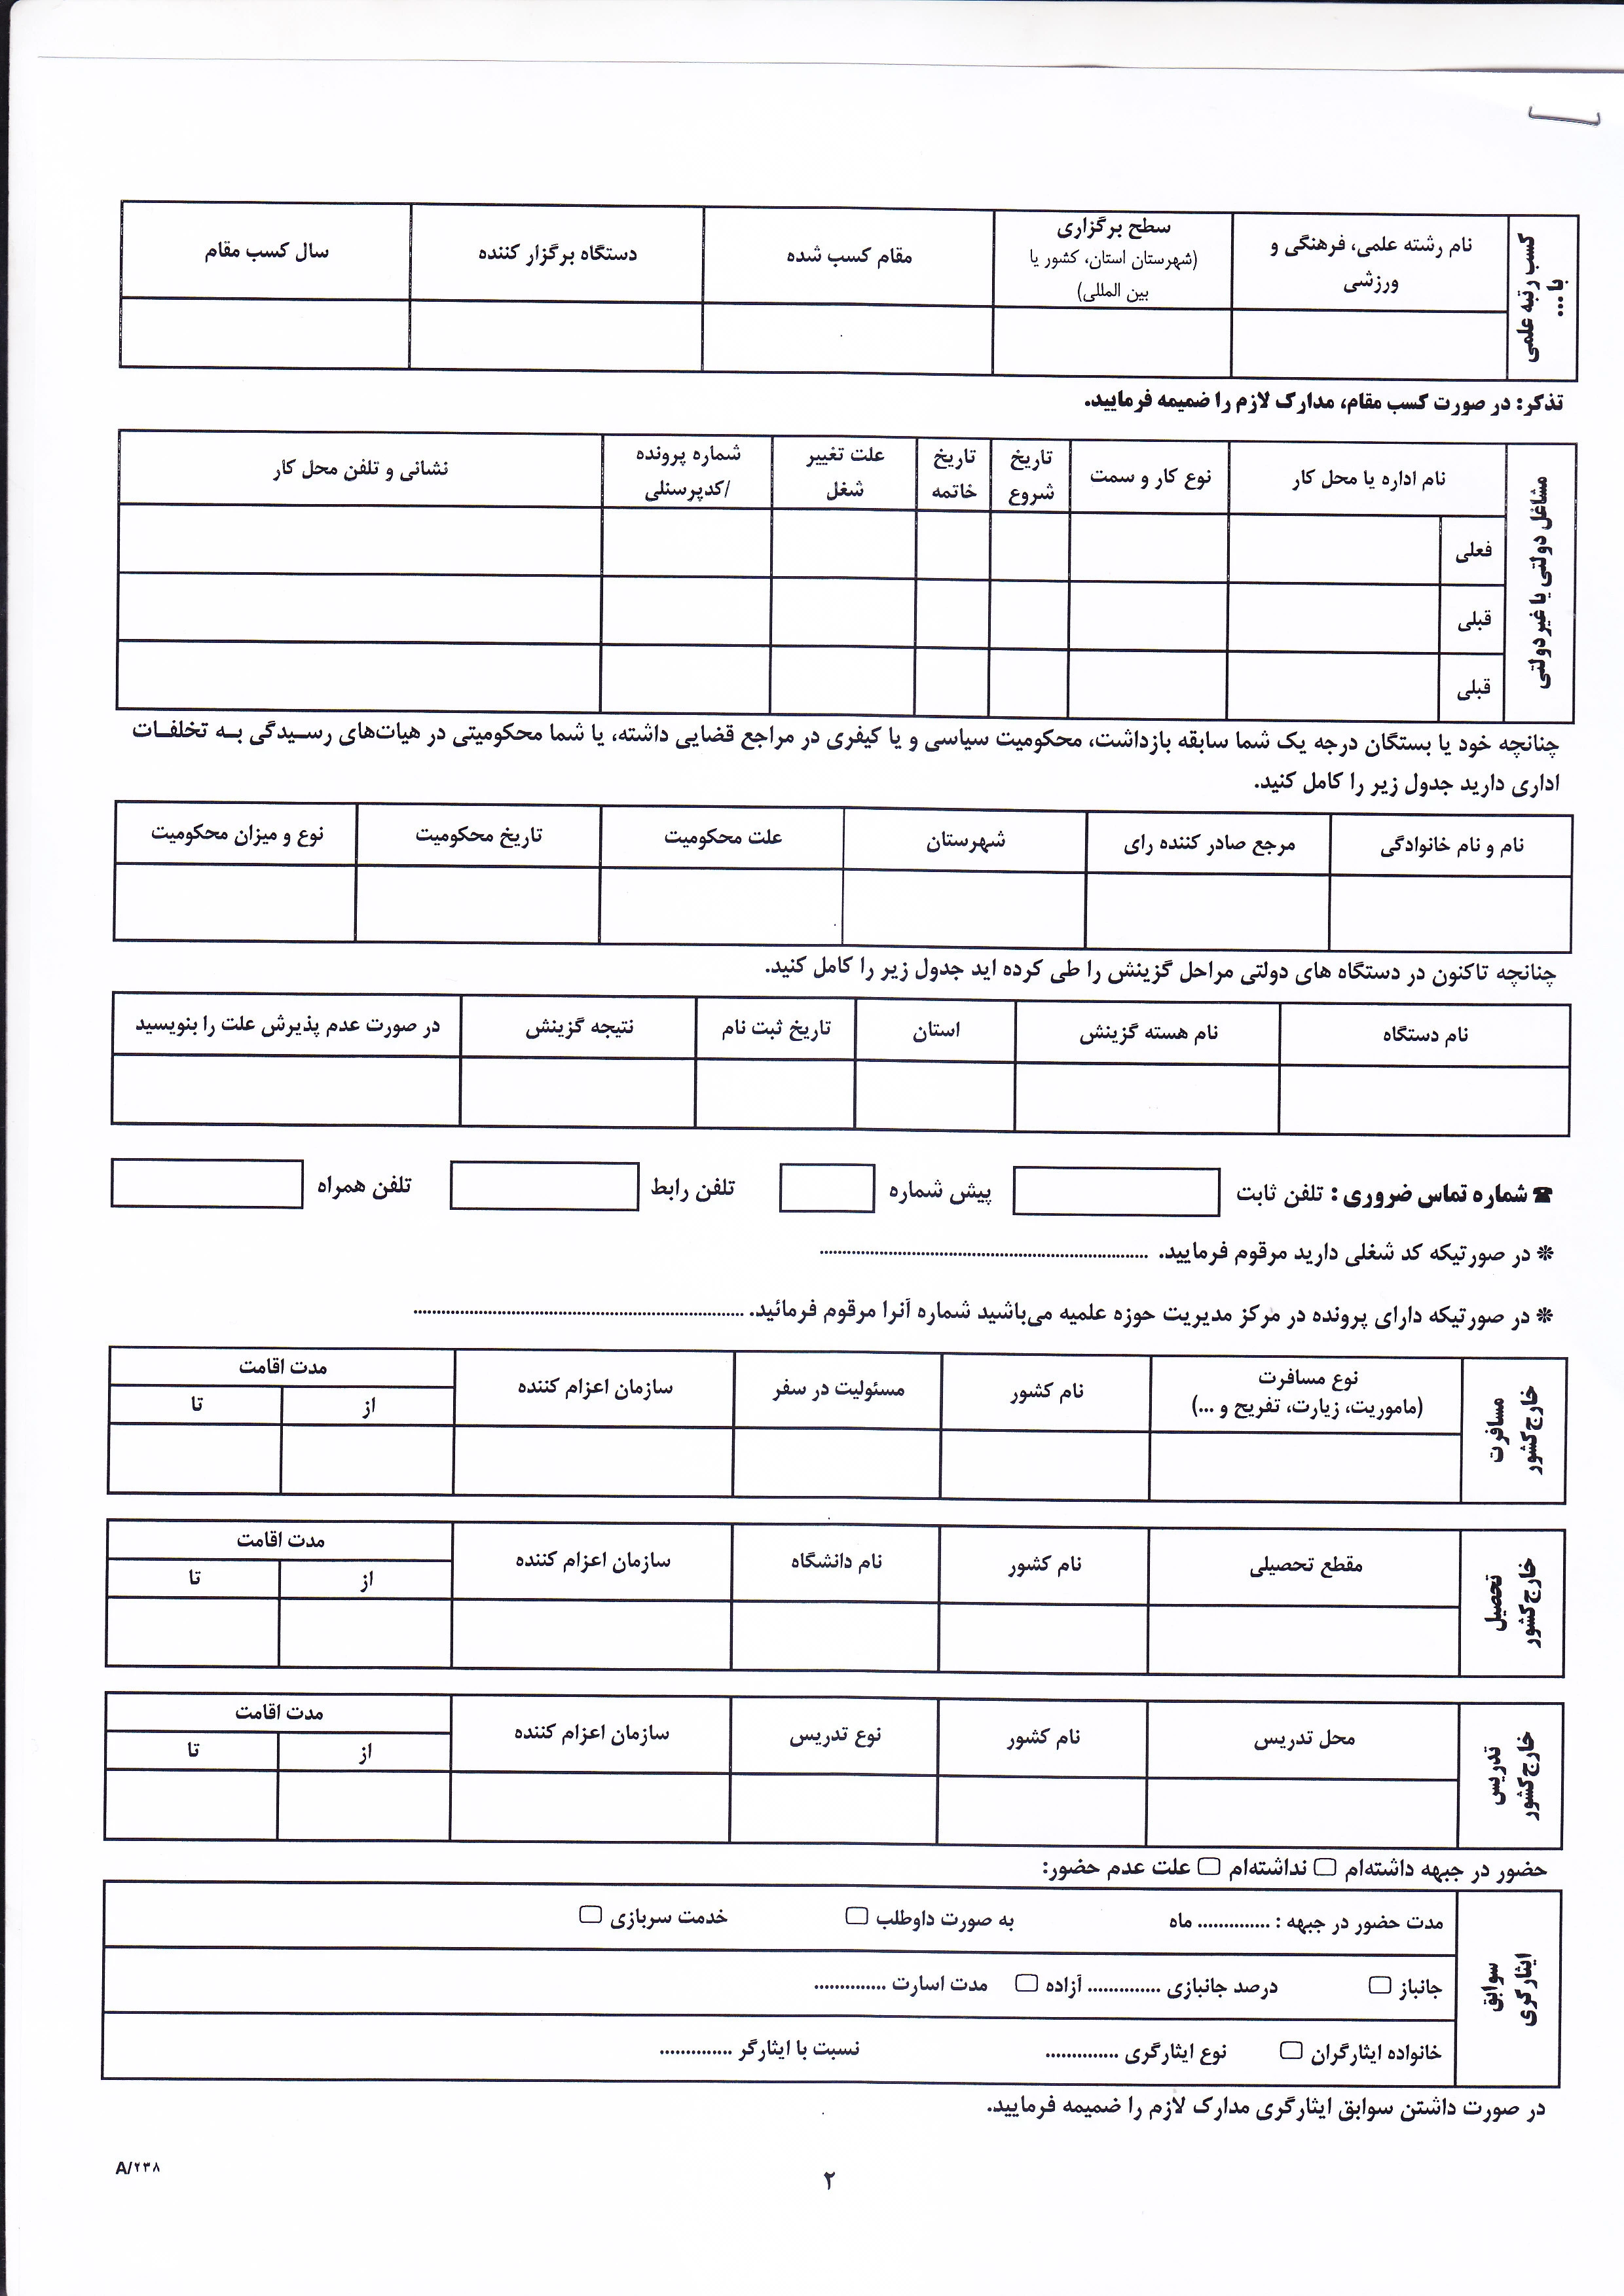 کسب رتبه علمی
یا ...
نام رشته علمی، فرهنگی و
ورزشی
سطح برگزاری
(شهرستان استان، کشور یا
بین المللی)
مقام کسب شده
دستگاه برگزار کننده
سال کسب مقام
تذکر: در صورت کسب مقام، مدارک لازم را ضمیمه فرمایید.
مشاغل دولتی یا غیر دولتی
نام اداره یا محل کار
نوع کار و سمت
تاریخ
شروع
تاریخ
خاتمه
علت تغییر
شغل
شماره پرونده
/کدپرسنلی
نشانی و تلفن محل کار
فعلی
قبلی
قبلی
چنانچه خود یا بستگان درجه یک شما سابقه بازداشت، محکومیت سیاسی و یا کیفری در مراجع قضایی داشته، یا شما محکومیتی در هیات‌های رسیدگی به تخلفات
اداری دارید جدول زیر را کامل کنید.
نام و نام خانوادگی
مرجع صادر کننده رای
شهرستان
علت محکومیت
تاریخ محکومیت
نوع و میزان محکومیت
چنانچه تاکنون در دستگاه های دولتی مراحل گزینش را طی کرده اید جدول زیر را کامل کنید.
نام دستگاه
نام هسته گزینش
استان
تاریخ ثبت نام
نتیجه گزینش
در صورت عدم پذیرش علت را بنویسید
☎ شماره تماس ضروری : تلفن ثابت پیش شماره تلفن رابط تلفن همراه
❊ در صورتیکه کد شغلی دارید مرقوم فرمایید. ........................................
❊ در صورتیکه دارای پرونده در مرکز مدیریت حوزه علمیه می‌باشید شماره آنرا مرقوم فرمائید. ........................................
مسافرت
خارج‌کشور
نوع مسافرت
(ماموریت، زیارت، تفریح و ...)
نام کشور
مسئولیت در سفر
سازمان اعزام کننده
مدت اقامت
از
تا
تحصیل
خارج‌کشور
مقطع تحصیلی
نام کشور
نام دانشگاه
سازمان اعزام کننده
مدت اقامت
از
تا
تدریس
خارج‌کشور
محل تدریس
نام کشور
نوع تدریس
سازمان اعزام کننده
مدت اقامت
از
تا
حضور در جبهه داشته‌ام ☐ نداشته‌ام ☐ علت عدم حضور:
سوابق
ایثارگری
مدت حضور در جبهه : .............. ماه به صورت داوطلب ☐ خدمت سربازی ☐
جانباز ☐ درصد جانبازی .............. آزاده ☐ مدت اسارت ..............
خانواده ایثارگران ☐ نوع ایثارگری .............. نسبت با ایثارگر ..............
در صورت داشتن سوابق ایثارگری مدارک لازم را ضمیمه فرمایید.
۲
A/۲۳۸